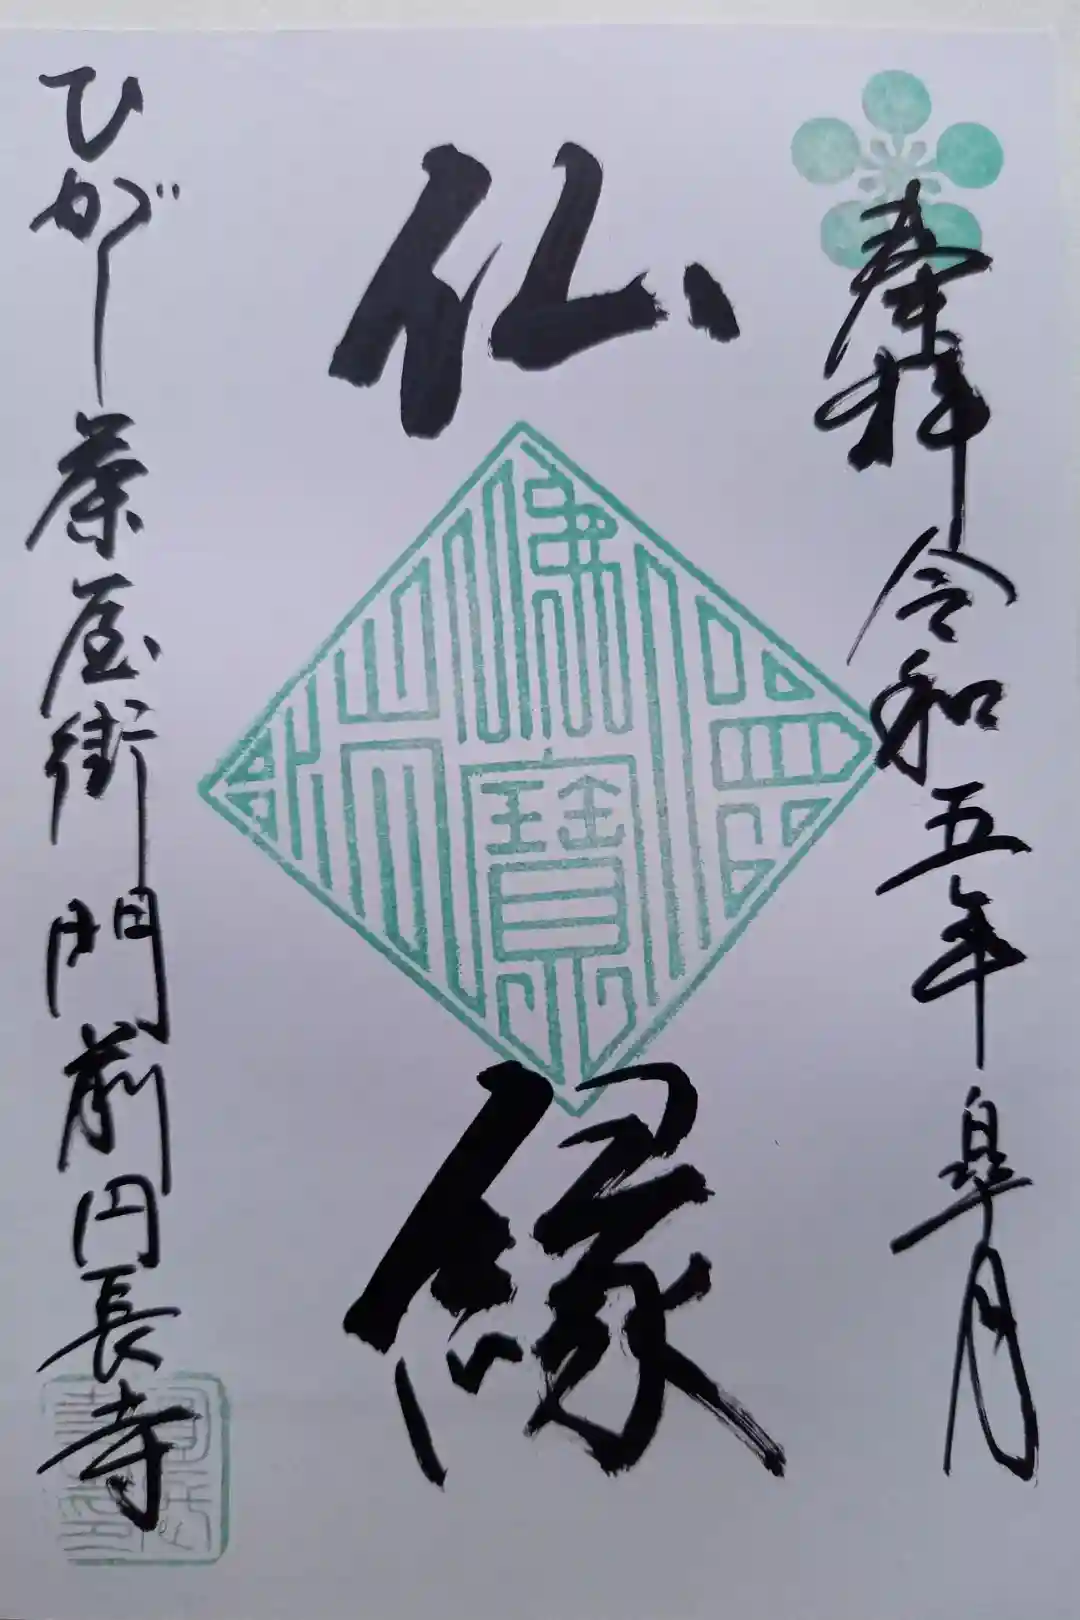 奉拝 令和五年皐月
仏縁
ひがし茶屋街門前円長寺